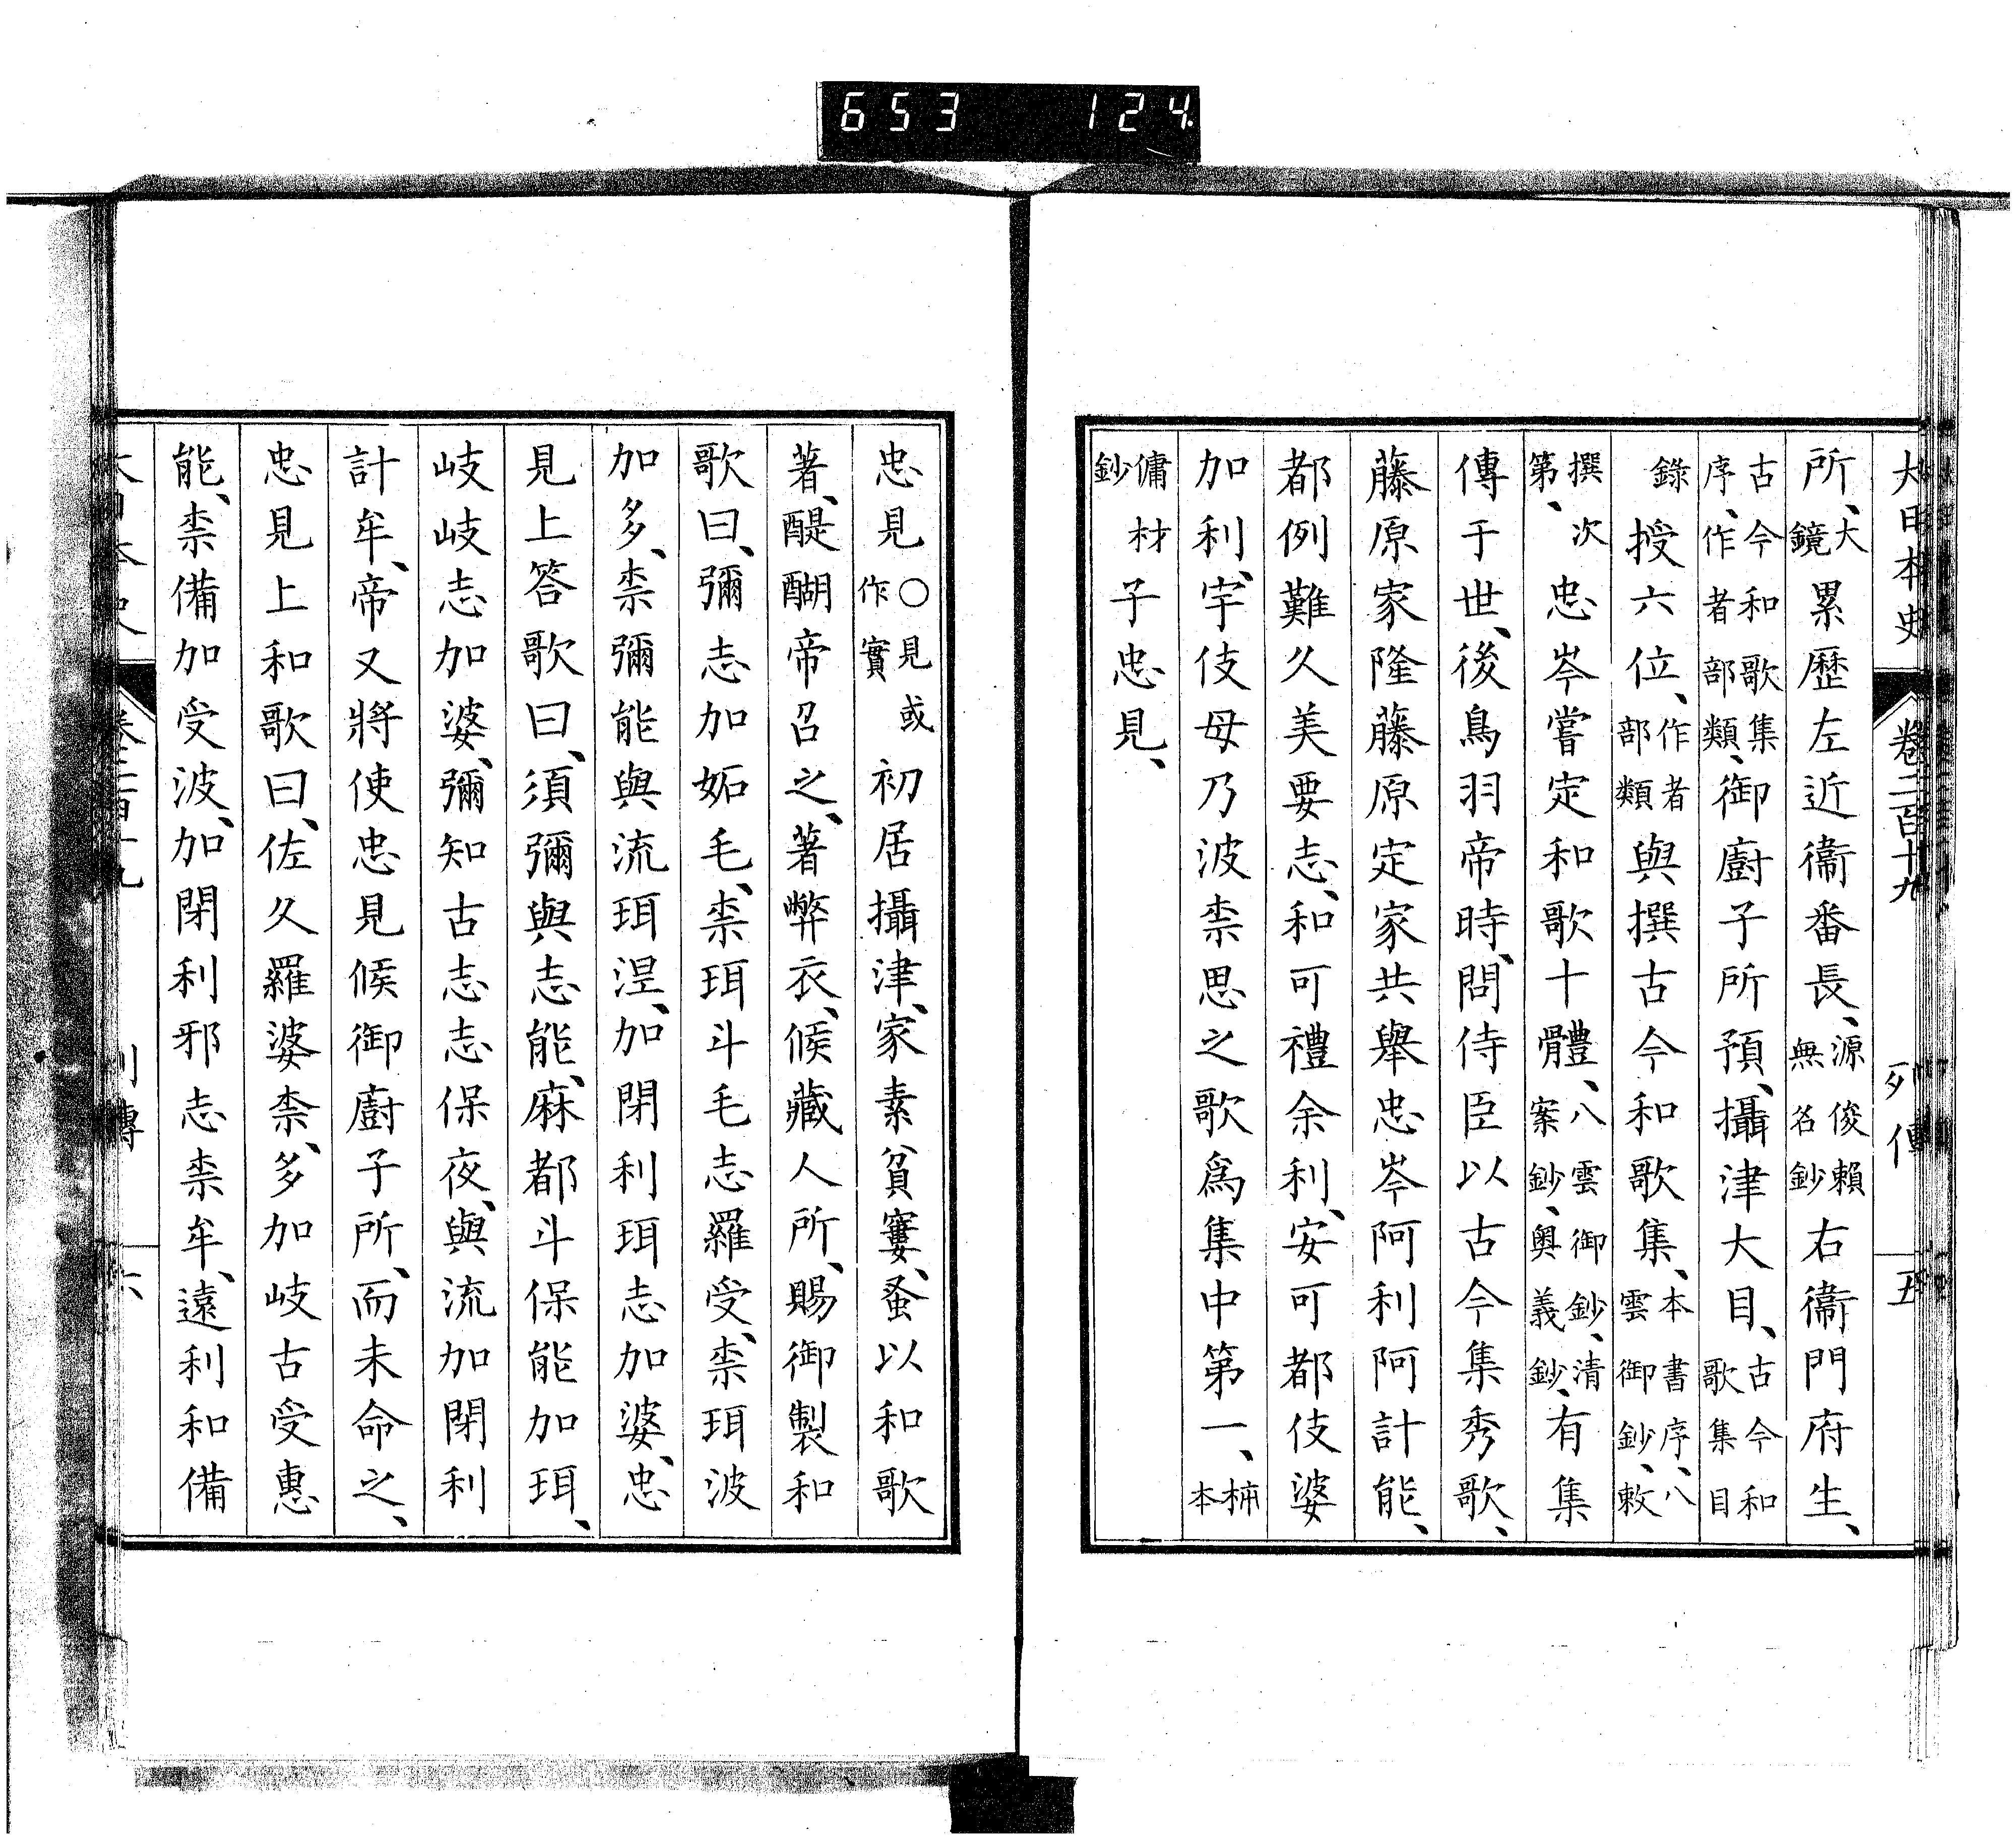 653 124
大日本史 卷二百十九 列傳 五
所、大鏡累歷左近衞番長、源俊賴無名鈔右衞門府生、
古今和歌集序、作者部類、御廚子所預、攝津大目、古今和歌集目
錄授六位、作者部類與撰古今和歌集、本書序、八雲御鈔、敕
撰次第、忠岑嘗定和歌十體、八雲御鈔、清案鈔、奧義鈔、有集
傳于世、後鳥羽帝時、問侍臣以古今集秀歌、
藤原家隆藤原定家共舉忠岑阿利阿計能、
都例難久美要志、和可禮余利、安可都伎婆
加利、宇伎母乃波柰思之歌爲集中第一、楠本
傭材鈔子忠見、
忠見○見或作實初居攝津、家素貧窶、蚤以和歌
著、醍醐帝召之、著弊衣、候藏人所、賜御製和
歌曰、彌志加妬毛、柰珥斗毛志羅受、柰珥波
加多、柰彌能與流珥涅、加閉利珥志加婆、忠
見上答歌曰、須彌與志能、麻都斗保能加珥、
岐岐志加婆、彌知古志志保夜、與流加閉利
計牟、帝又將使忠見候御廚子所、而未命之、
忠見上和歌曰、佐久羅婆柰、多加岐古受惠
能、柰備加受波、加閉利邪志柰牟、遠利和備